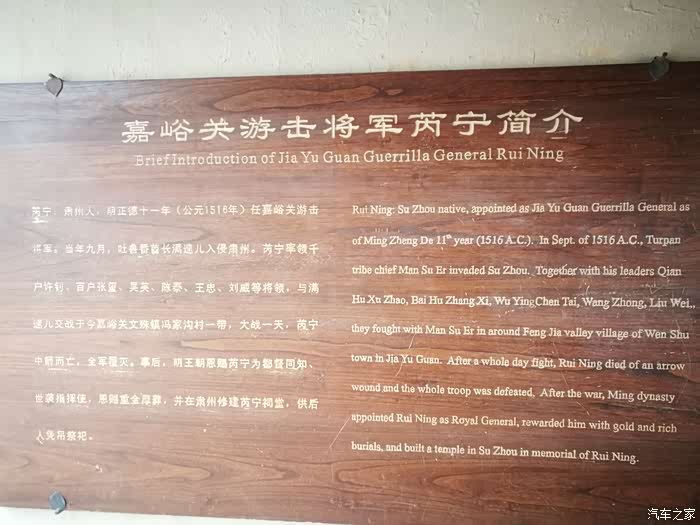 嘉峪关游击将军芮宁简介
Brief Introduction of Jia Yu Guan Guerrilla General Rui Ning
芮宁：肃州人，明正德十一年（公元1516年）任嘉峪关游击
将军。当年九月，吐鲁番酋长满速儿入侵肃州。芮宁率领千
户许钊、百户张玺、吴英、陈泰、王忠、刘威等将领，与满
速儿交战于今嘉峪关文殊镇冯家沟村一带，大战一天，芮宁
中箭而亡，全军覆灭。事后，明王朝恩赐芮宁为都督同知、
世袭指挥使，恩赐重金厚葬，并在肃州修建芮宁祠堂，供后
人凭吊祭祀。
Rui Ning: Su Zhou native, appointed as Jia Yu Guan Guerrilla General as
of Ming Zheng De 11th year (1516 A.C.). In Sept. of 1516 A.C., Turpan
tribe chief Man Su Er invaded Su Zhou. Together with his leaders Qian
Hu Xu Zhao, Bai Hu Zhang Xi, Wu Ying Chen Tai, Wang Zhong, Liu Wei.,
they fought with Man Su Er in around Feng Jia valley village of Wen Shu
town in Jia Yu Guan. After a whole day fight, Rui Ning died of an arrow
wound and the whole troop was defeated. After the war, Ming dynasty
appointed Rui Ning as Royal General, rewarded him with gold and rich
burials, and built a temple in Su Zhou in memorial of Rui Ning.
汽车之家